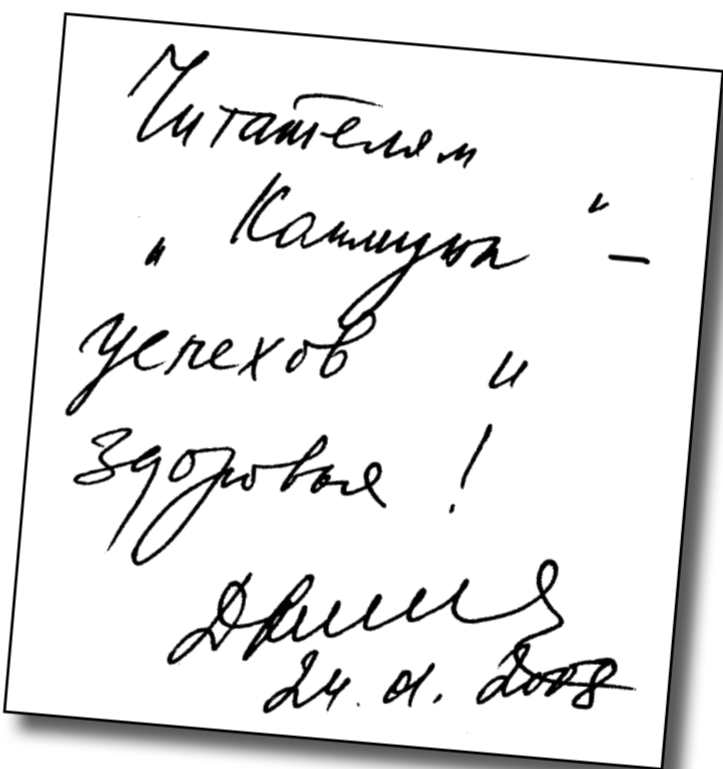 Читателям
" "–
успехов и
здоровья!
24. 01. 2008